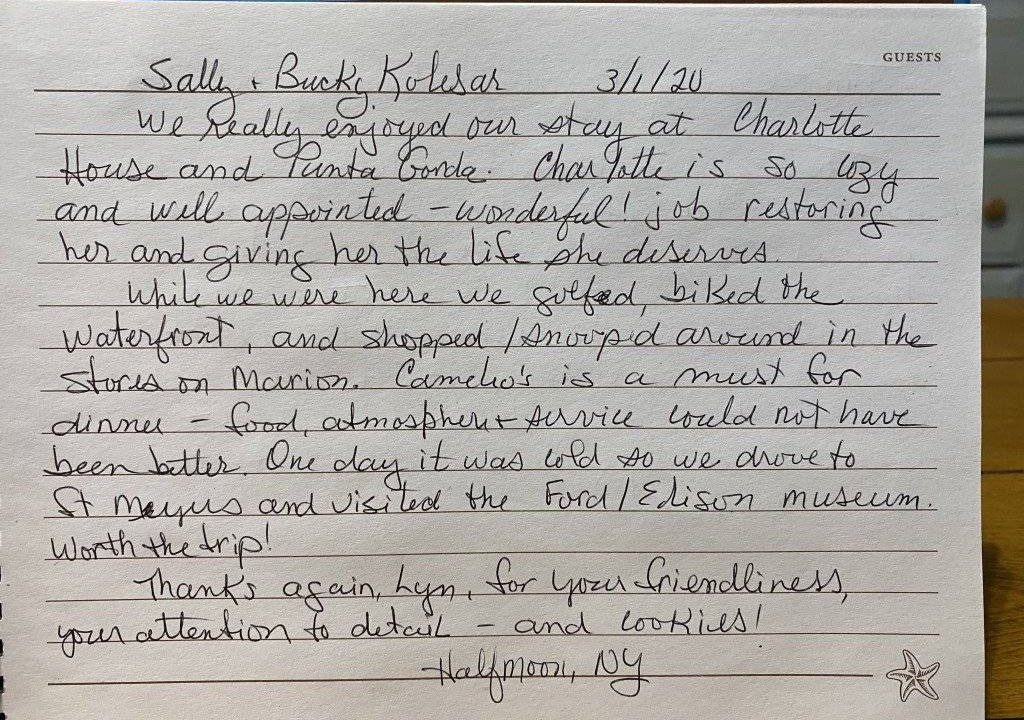 GUESTS
Sally + Bucky Kolesar 3/1/20
We really enjoyed our stay at Charlotte
House and Punta Gorda. Charlotte is so cozy
and well appointed - wonderful! job restoring
her and giving her the life she deserves.
While we were here we golfed, biked the
waterfront, and shopped / snooped around in the
stores on Marion. Camelio's is a must for
dinner - food, atmosphere + service could not have
been better. One day it was cold so we drove to
St Meyers and visited the Ford / Edison museum.
Worth the trip!
Thanks again, Lyn, for your friendliness,
your attention to detail - and cookies!
Halfmoon, NY